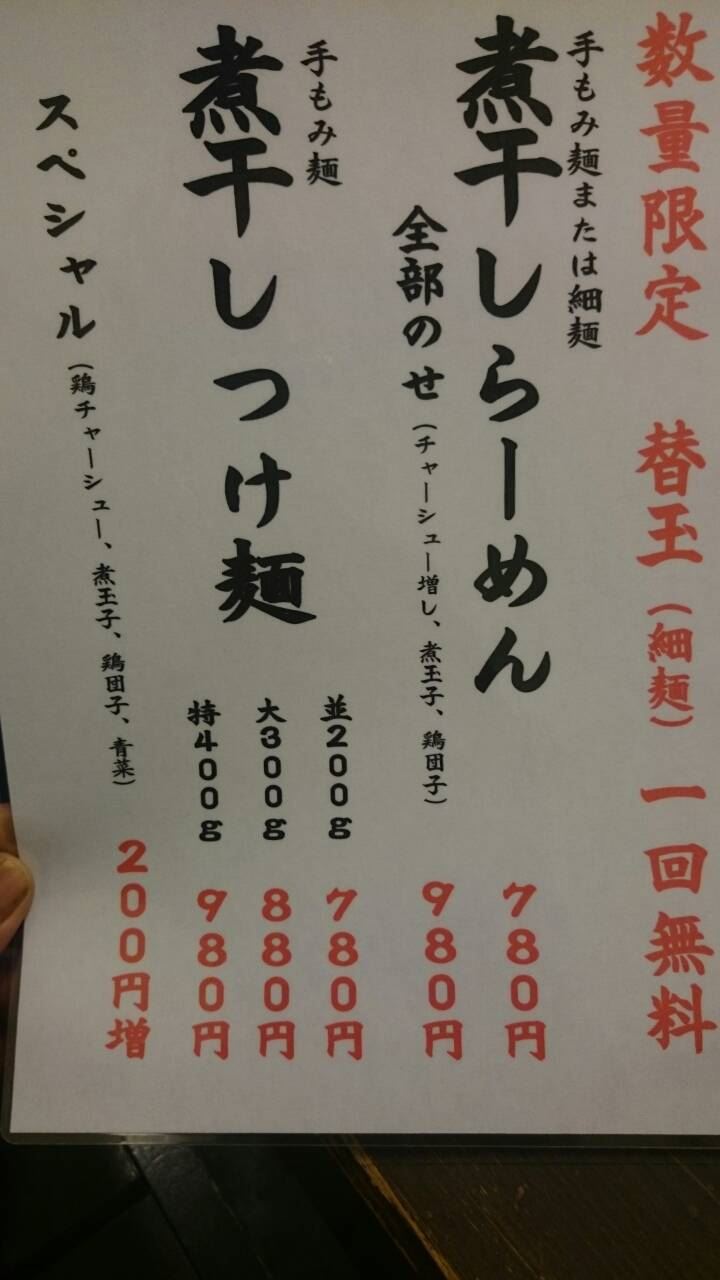 数量限定 替玉(細麺)一回無料
手もみ麺または細麺
煮干しらーめん 780円
全部のせ(チャーシュー増し、煮玉子、鶏団子) 980円
手もみ麺
煮干しつけ麺
並200g 780円
大300g 880円
特400g 980円
スペシャル(鶏チャーシュー、煮玉子、鶏団子、青菜) 200円増